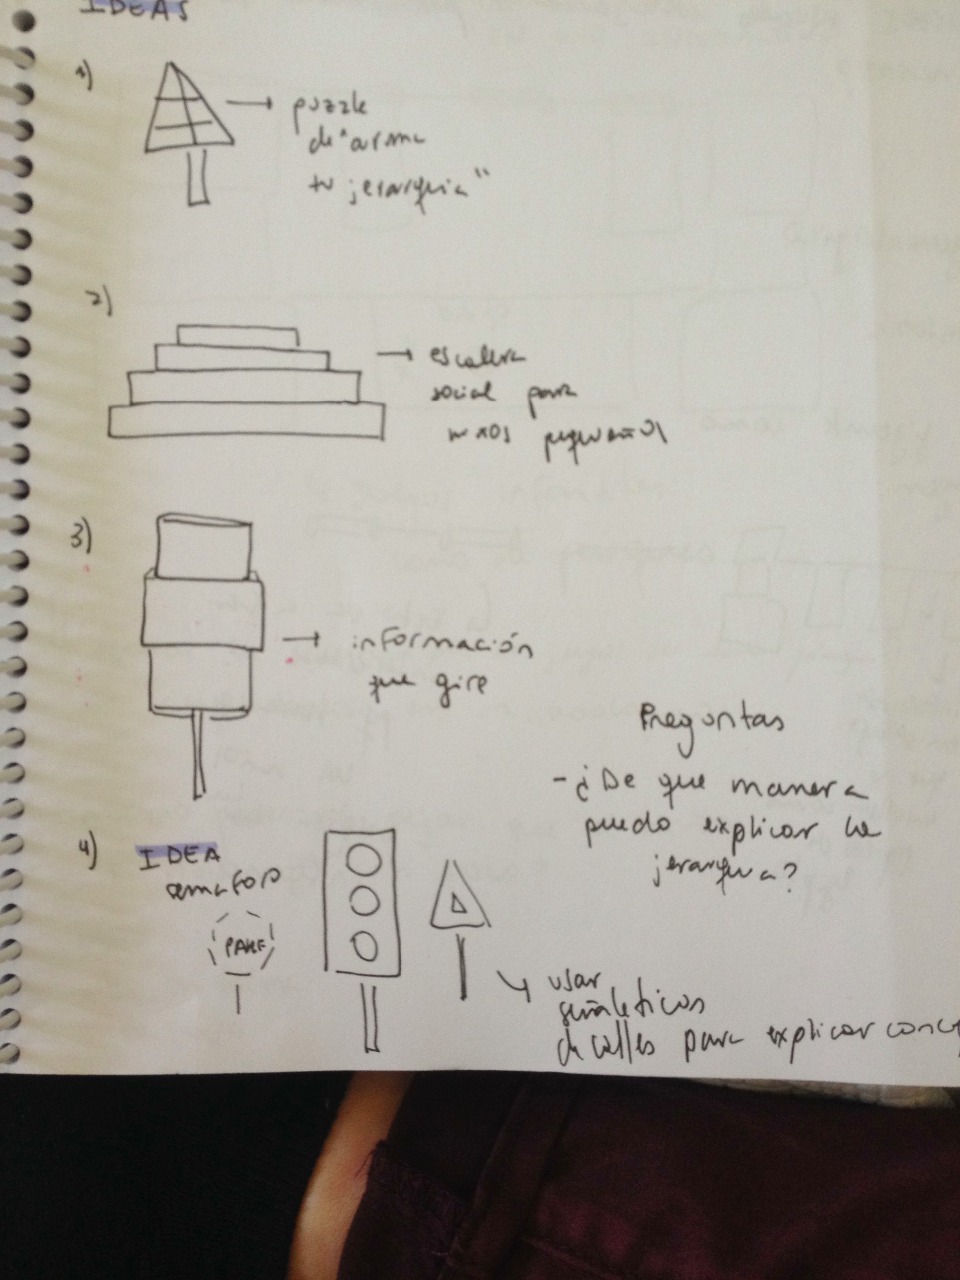 IDEAS
1)
puzzle
de "arma
tu jerarquia"
2)
escalera
social para
pequeños
3)
información
que gire
Preguntas
- ¿De que manera
puedo explicar la
jerarquia?
4) IDEA
semaforo
PARE
usar
señaleticos
de calles para explicar conce